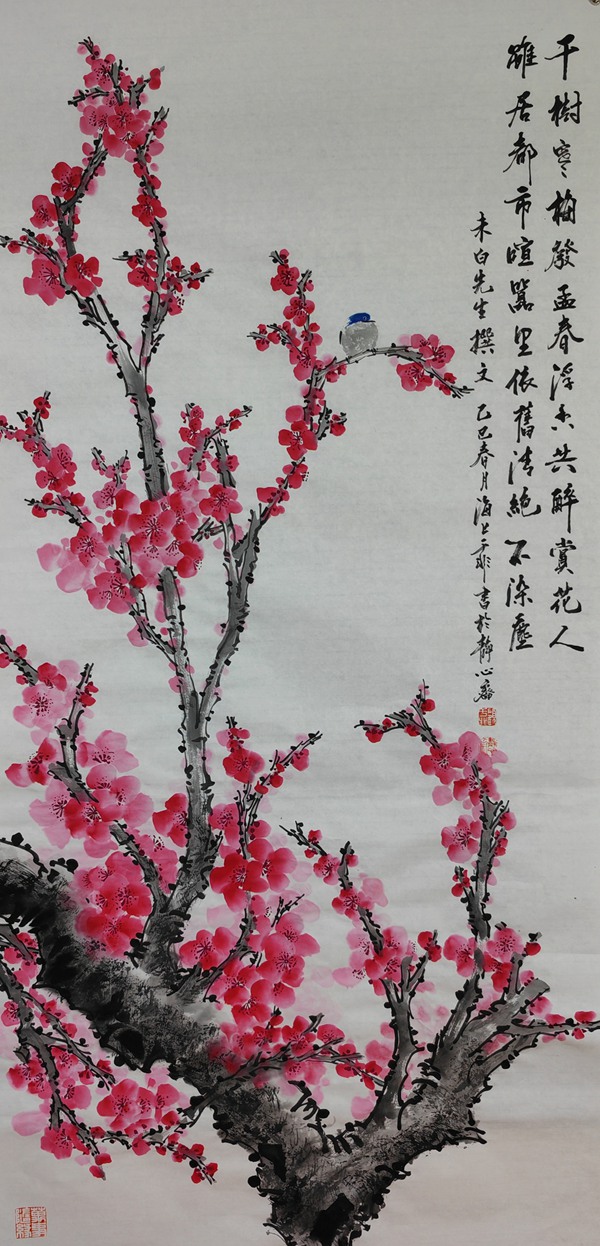 千樹寒梅發孟春浮香共醉賞花人
雖居都市暄嚣里依舊清絶不染塵
未白先生撰文 乙巳春月海上子非書於靜心齋